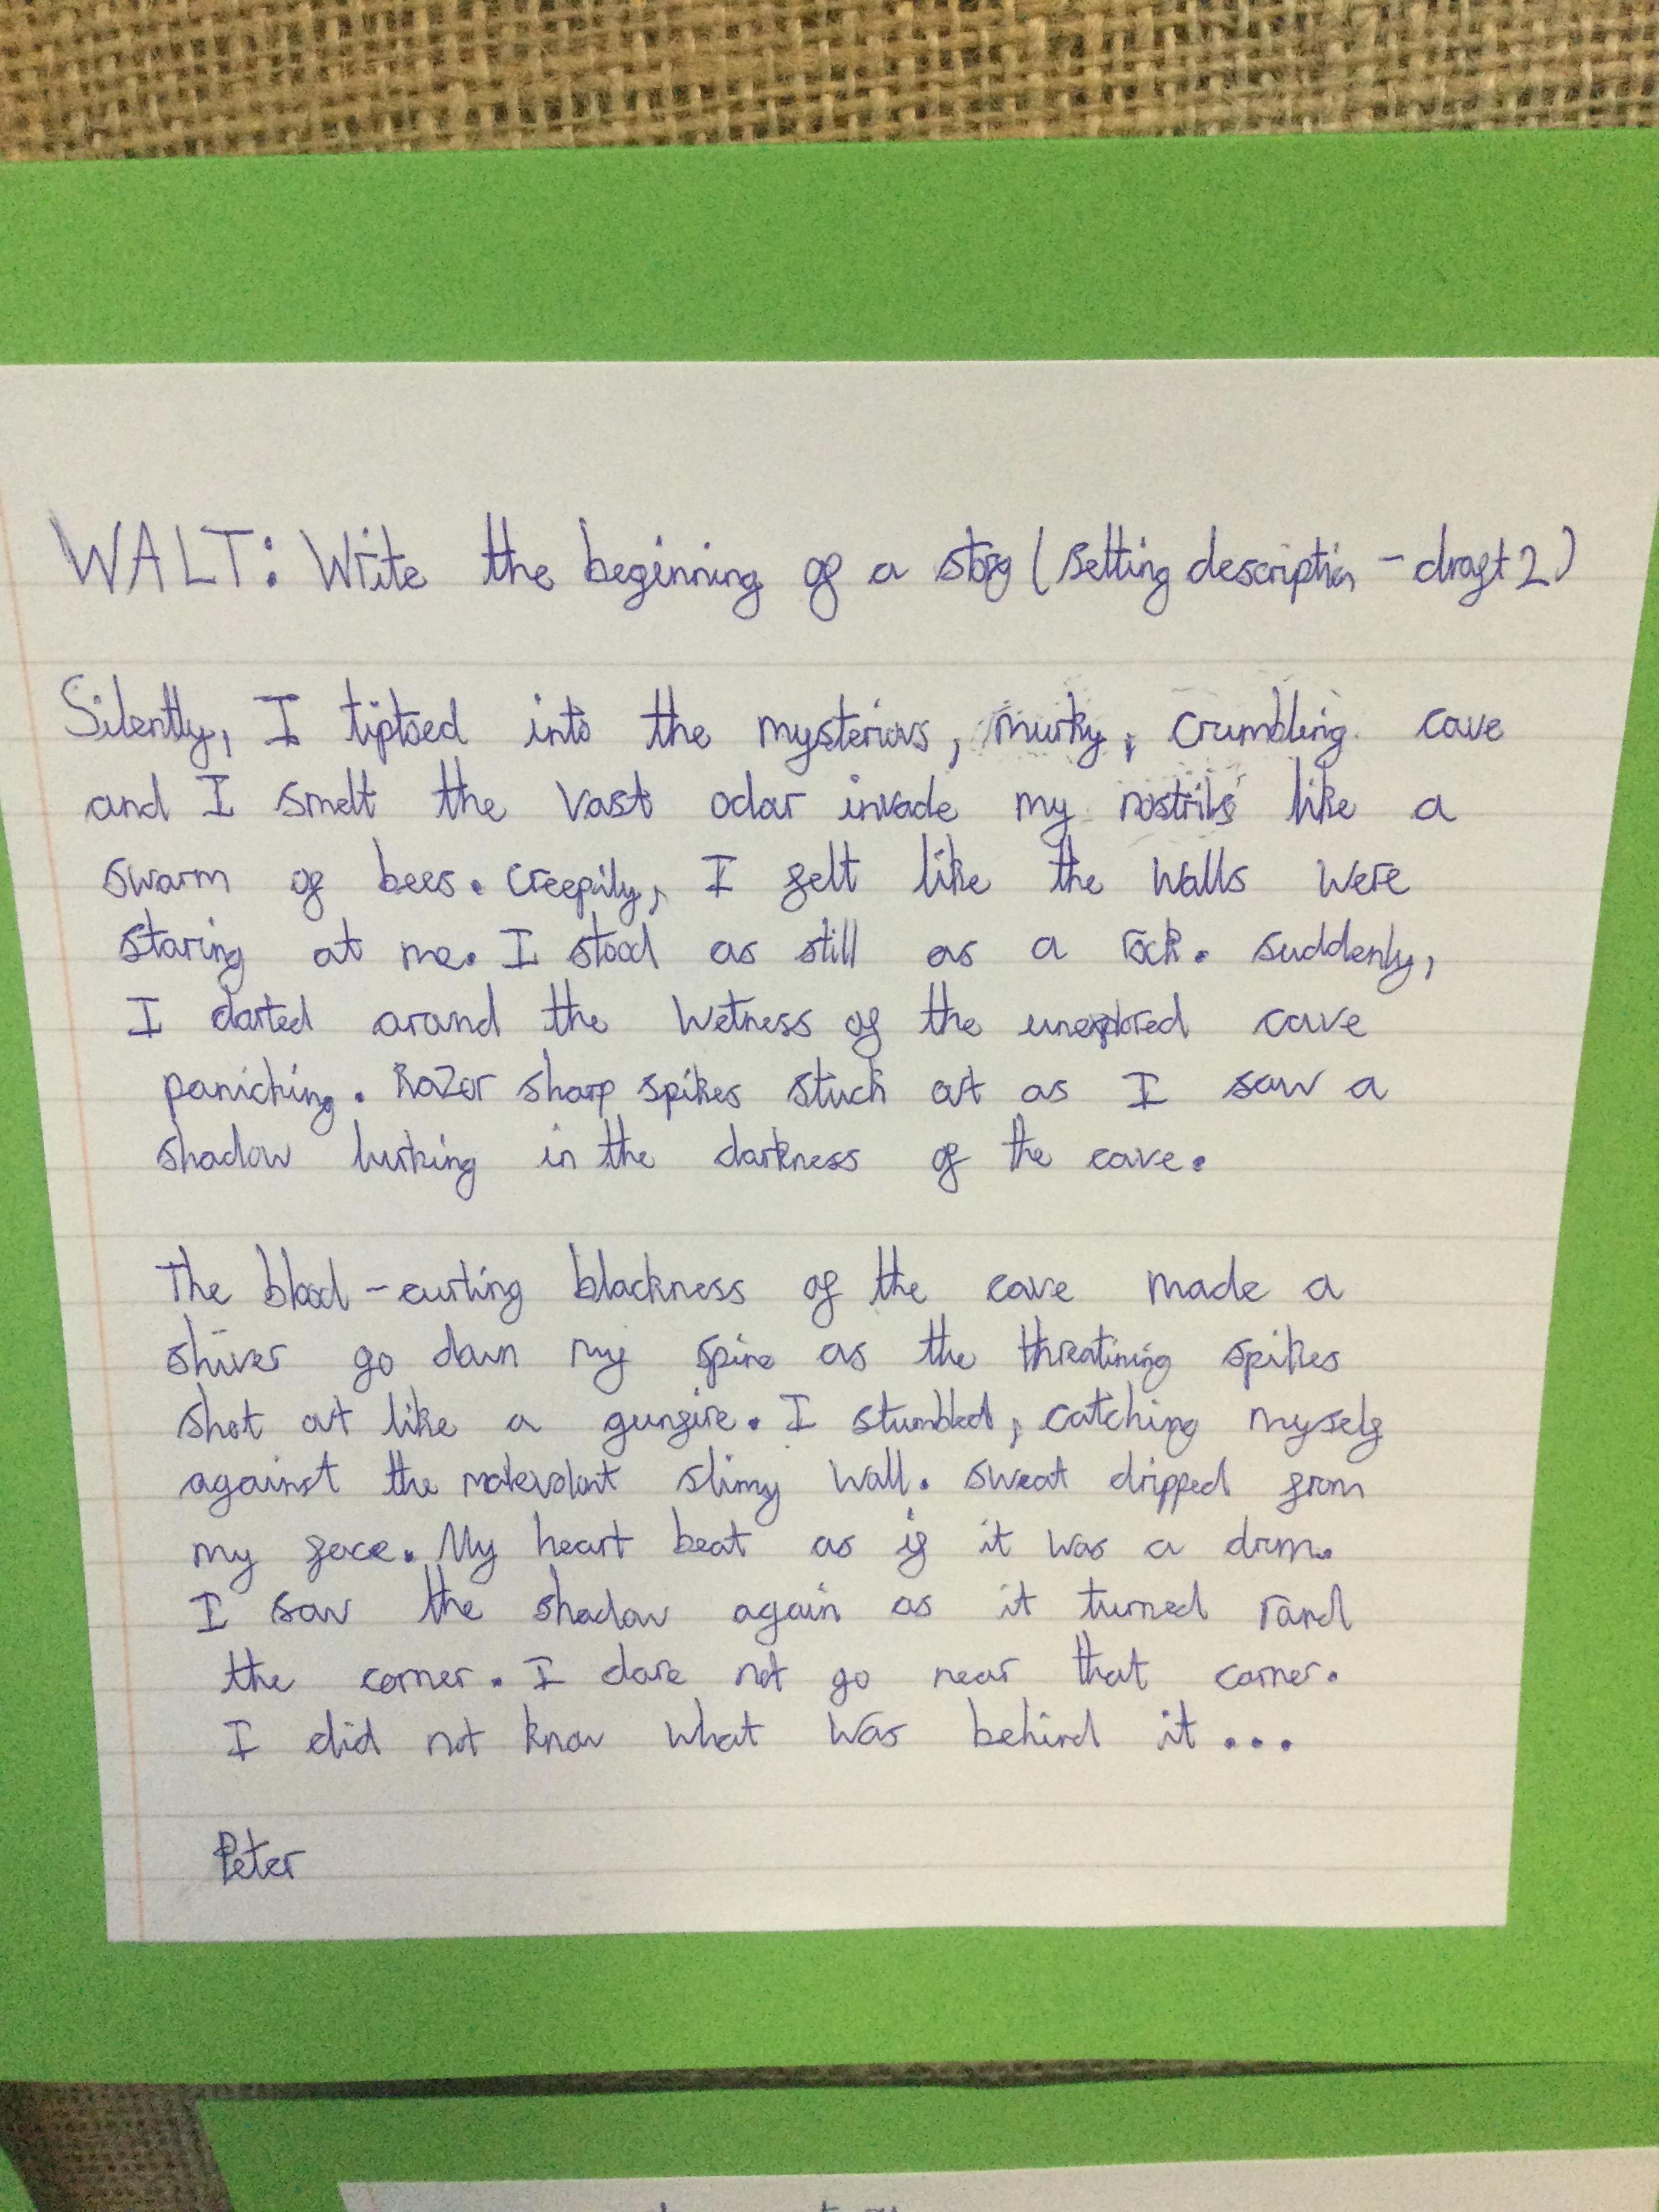 WALT: Write the beginning of a story (setting description - draft 2)
Silently, I tiptoed into the mysterious, murky, crumbling cave
and I smelt the vast odar invade my nostrils like a
swarm of bees. Creepily, I felt like the walls were
staring at me. I stood as still as a rock. suddenly,
I darted around the wetness of the unexplored cave
panicking. Razor sharp spikes stuck out as I saw a
shadow lurking in the darkness of the cave.
The blood-curling blackness of the cave made a
shiver go down my spine as the threatining spikes
shot out like a gunfire. I stumbled, catching myself
against the malevolent slimy wall. sweat dripped from
my face. My heart beat as if it was a drum.
I saw the shadow again as it turned round
the corner. I dare not go near that corner.
I did not know what was behind it...
Peter